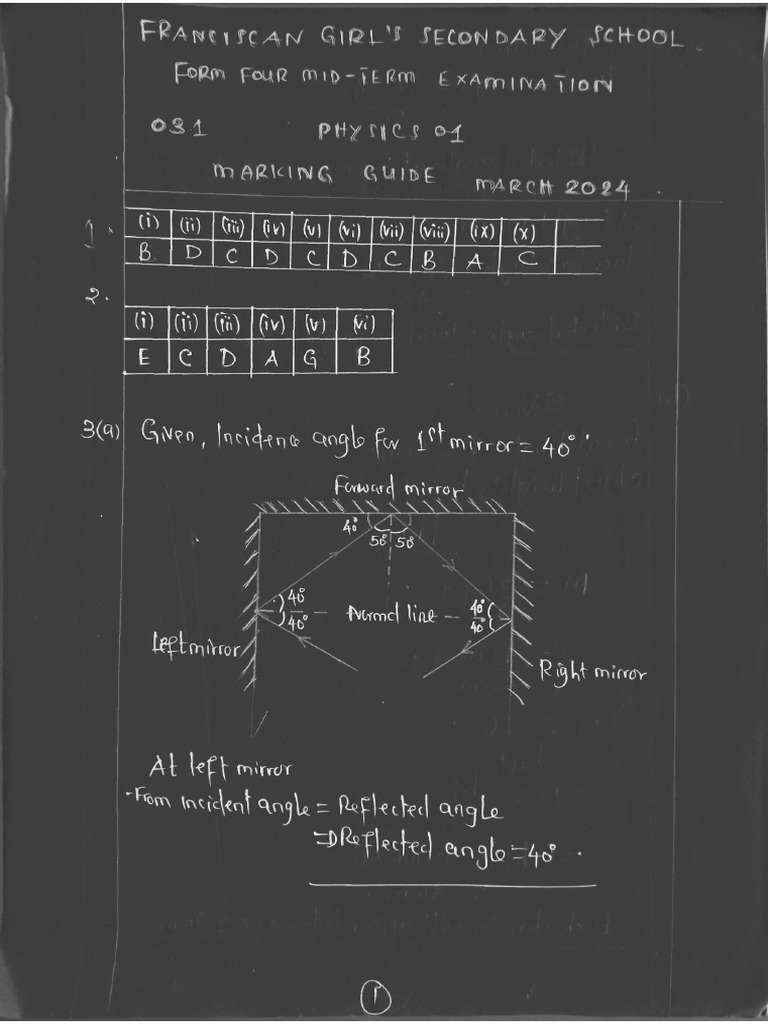 FRANCISCAN GIRL'S SECONDARY SCHOOL.
FORM FOUR MID-TERM EXAMINATION
031 PHYSICS 01
MARKING GUIDE MARCH 2024.
1. (i) (ii) (iii) (iv) (v) (vi) (vii) (viii) (ix) (x)
B D C D C D C B A C
2.
(i) (ii) (iii) (iv) (v) (vi)
E C D A G B
3(a) Given, Incidence angle for 1st mirror = 40°
Forward mirror
40°
50° 50°
40° 40°
Normal line
40° 40°
Left mirror
Right mirror
At left mirror
-From incident angle = Reflected angle
⇒ Reflected angle = 40°.
1